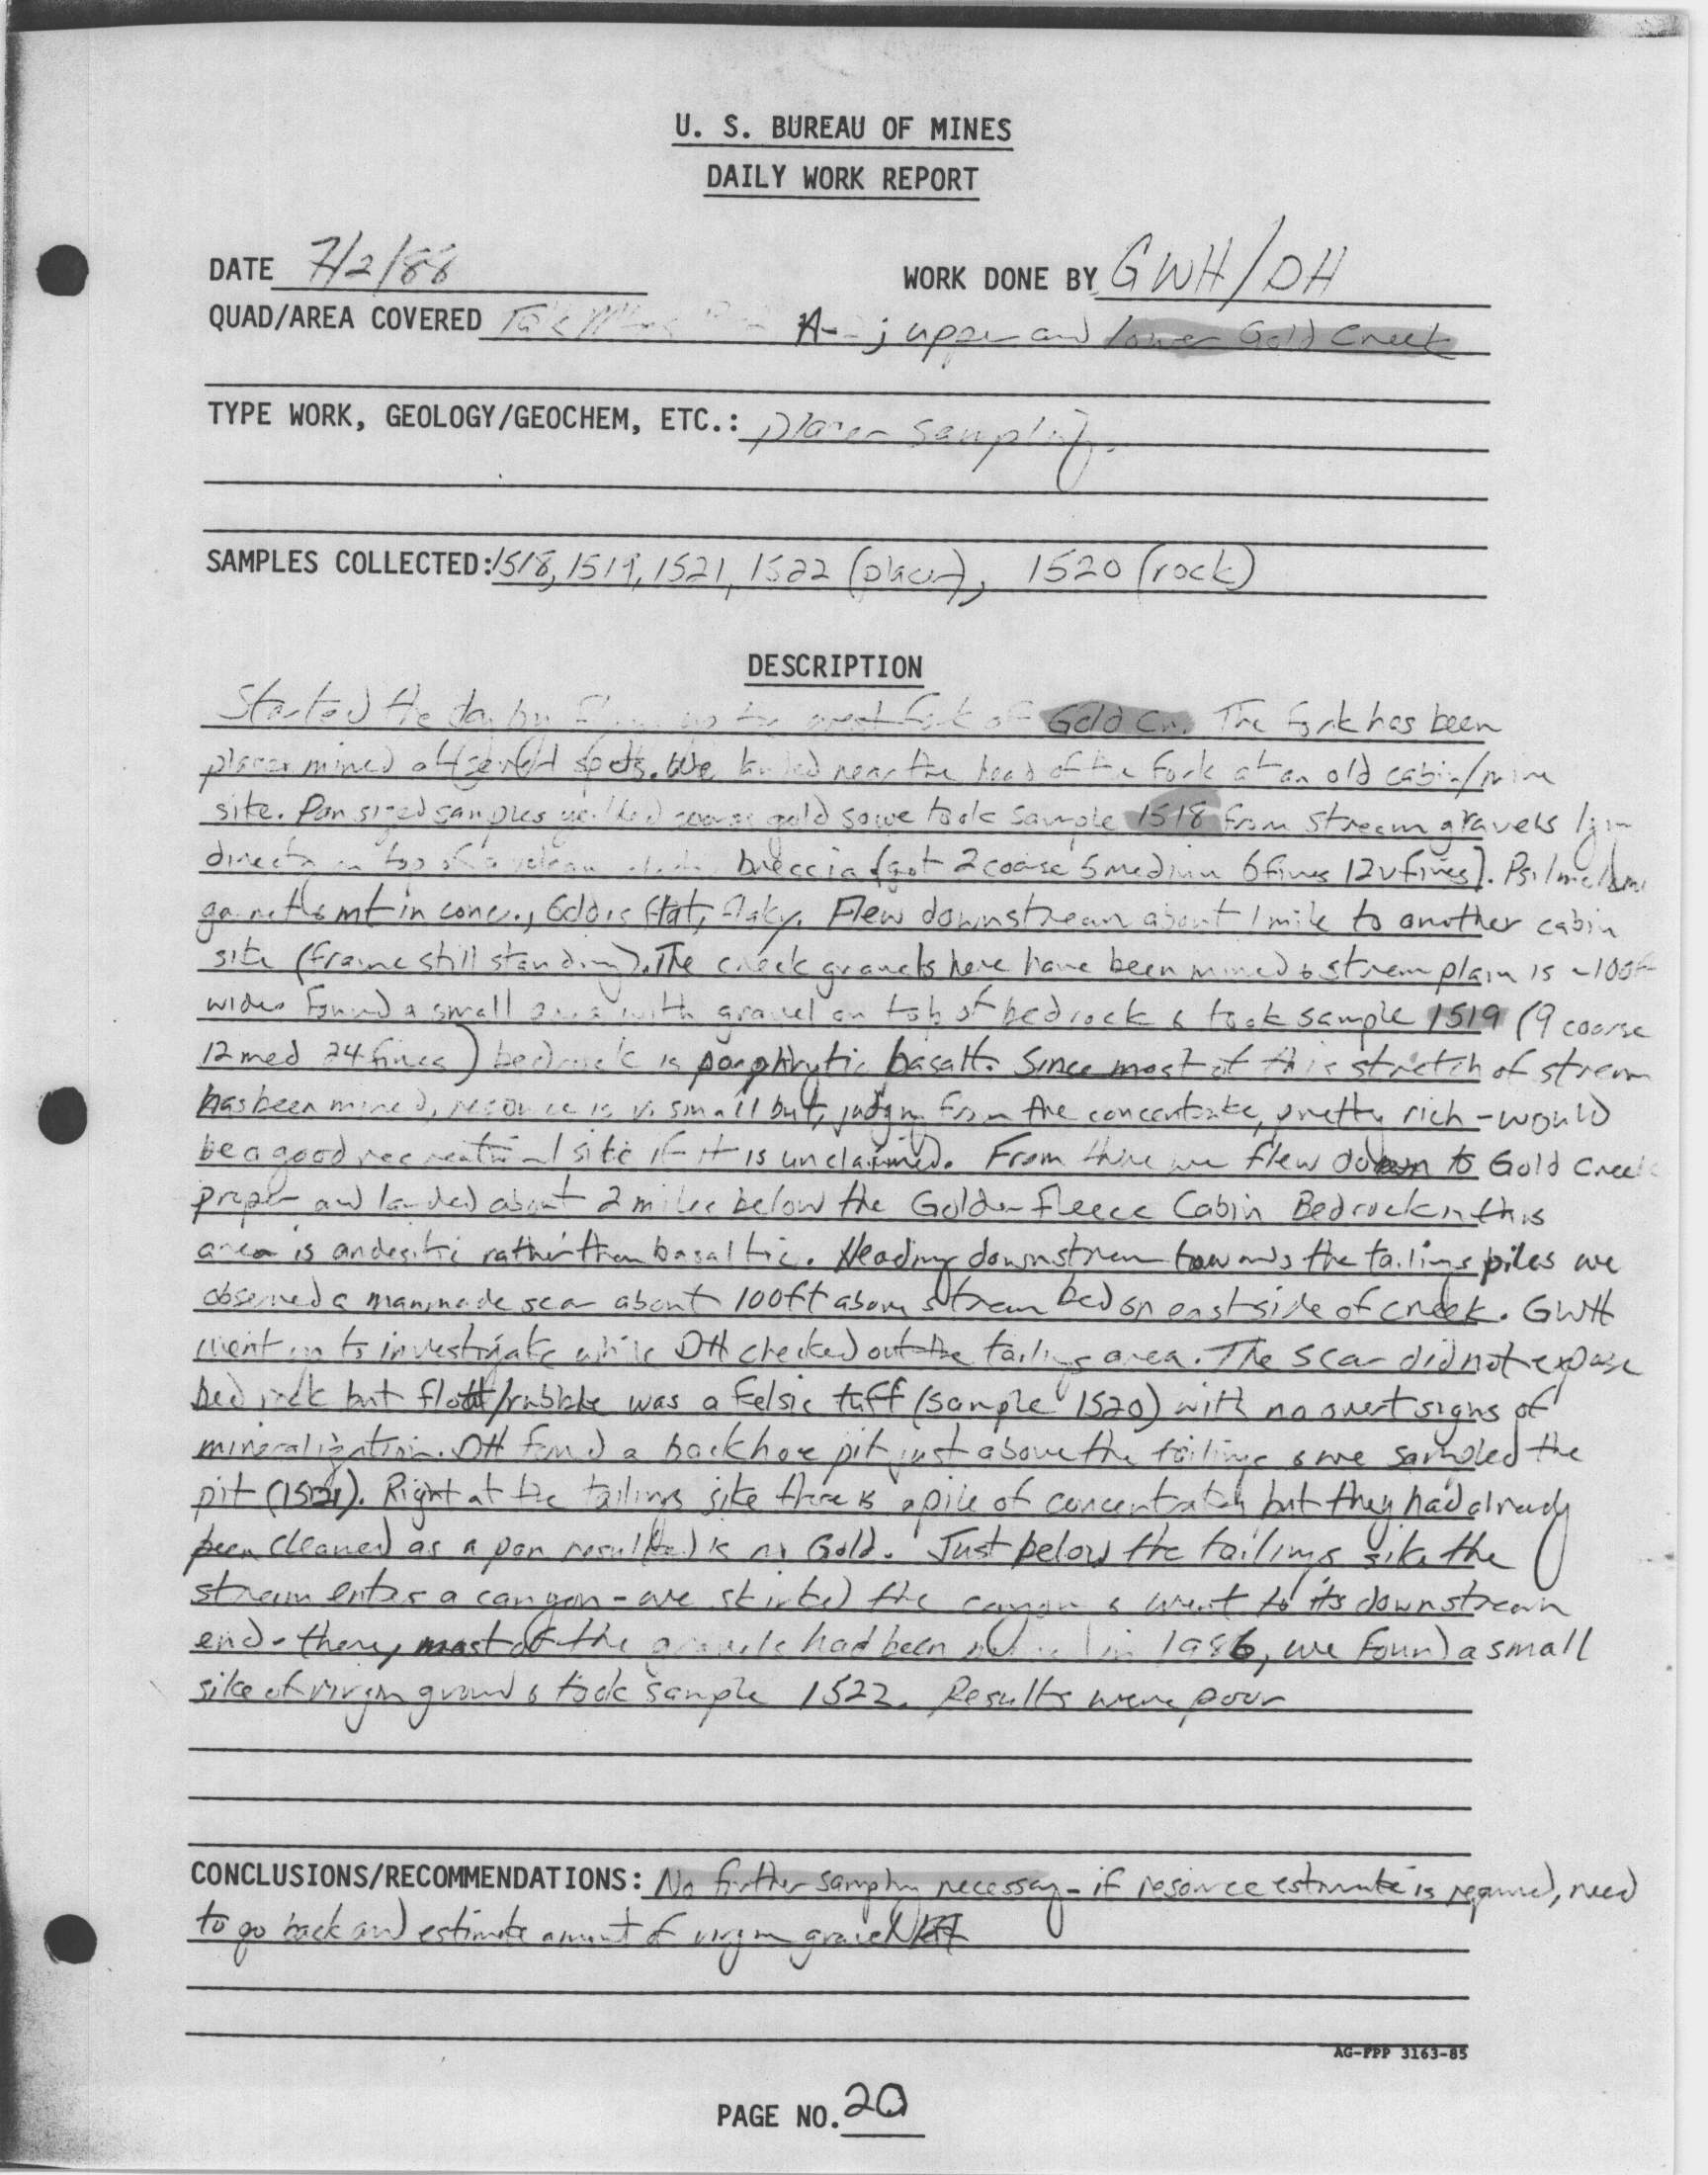 U. S. BUREAU OF MINES
DAILY WORK REPORT
DATE 7/2/88 WORK DONE BY GWH/DH
QUAD/AREA COVERED A- ; upper and lower Gold Creek
TYPE WORK, GEOLOGY/GEOCHEM, ETC.: placer sampling.
SAMPLES COLLECTED: 1518, 1519, 1521, 1522 (placer), 1520 (rock)
DESCRIPTION
Started the day by up the west fork of Gold Cr. The fork has been
placer mined at several spots. We landed near the head of the fork at an old cabin/mine
site. Pan sized samples coarse gold so we took sample 1518 from stream gravels
directly on top of a breccia (got 2 coarse 5 medium 6 fines 12 v fines).
mt in conc., Gold is flat, flaky. Flew downstream about 1 mile to another cabin
site (frame still standing). The creek gravels here have been mined & stream plain is ~100ft
wide. Found a small area with gravel on top of bedrock & took sample 1519 (9 coarse
12 med 24 fines) bedrock is porphrytic basalt. Since most of this stretch of stream
has been mined, resource is v. small but, judging from the concentrate, pretty rich - would
be a good recreational site if it is unclaimed. From there we flew down to Gold Creek
proper and landed about 2 miles below the Golden Fleece Cabin Bedrock in this
area is andesitic rather than basaltic. Heading downstream towards the tailings piles we
observed a manmade scar about 100ft above stream bed on east side of creek. GWH
went up to investigate while DH checked out the tailings area. The scar did not expose
bedrock but float/rubble was a felsic tuff (sample 1520) with no overt signs of
mineralization. DH found a backhoe pit just above the tailings & we sampled the
pit (1521). Right at the tailings site there is a pile of concentrates but they had already
been cleaned as a pan resulted is no Gold. Just below the tailings site the
stream enters a canyon - we skirted the canyon & went to its downstream
end - there, most of the gravels had been mined in 1986, we found a small
site of virgin ground & took sample 1522. Results were poor
CONCLUSIONS/RECOMMENDATIONS: No further sampling necessary - if resource estimate is required, need
to go back and estimate amount of virgin gravel left
AG-FPP 3163-85
PAGE NO. 20